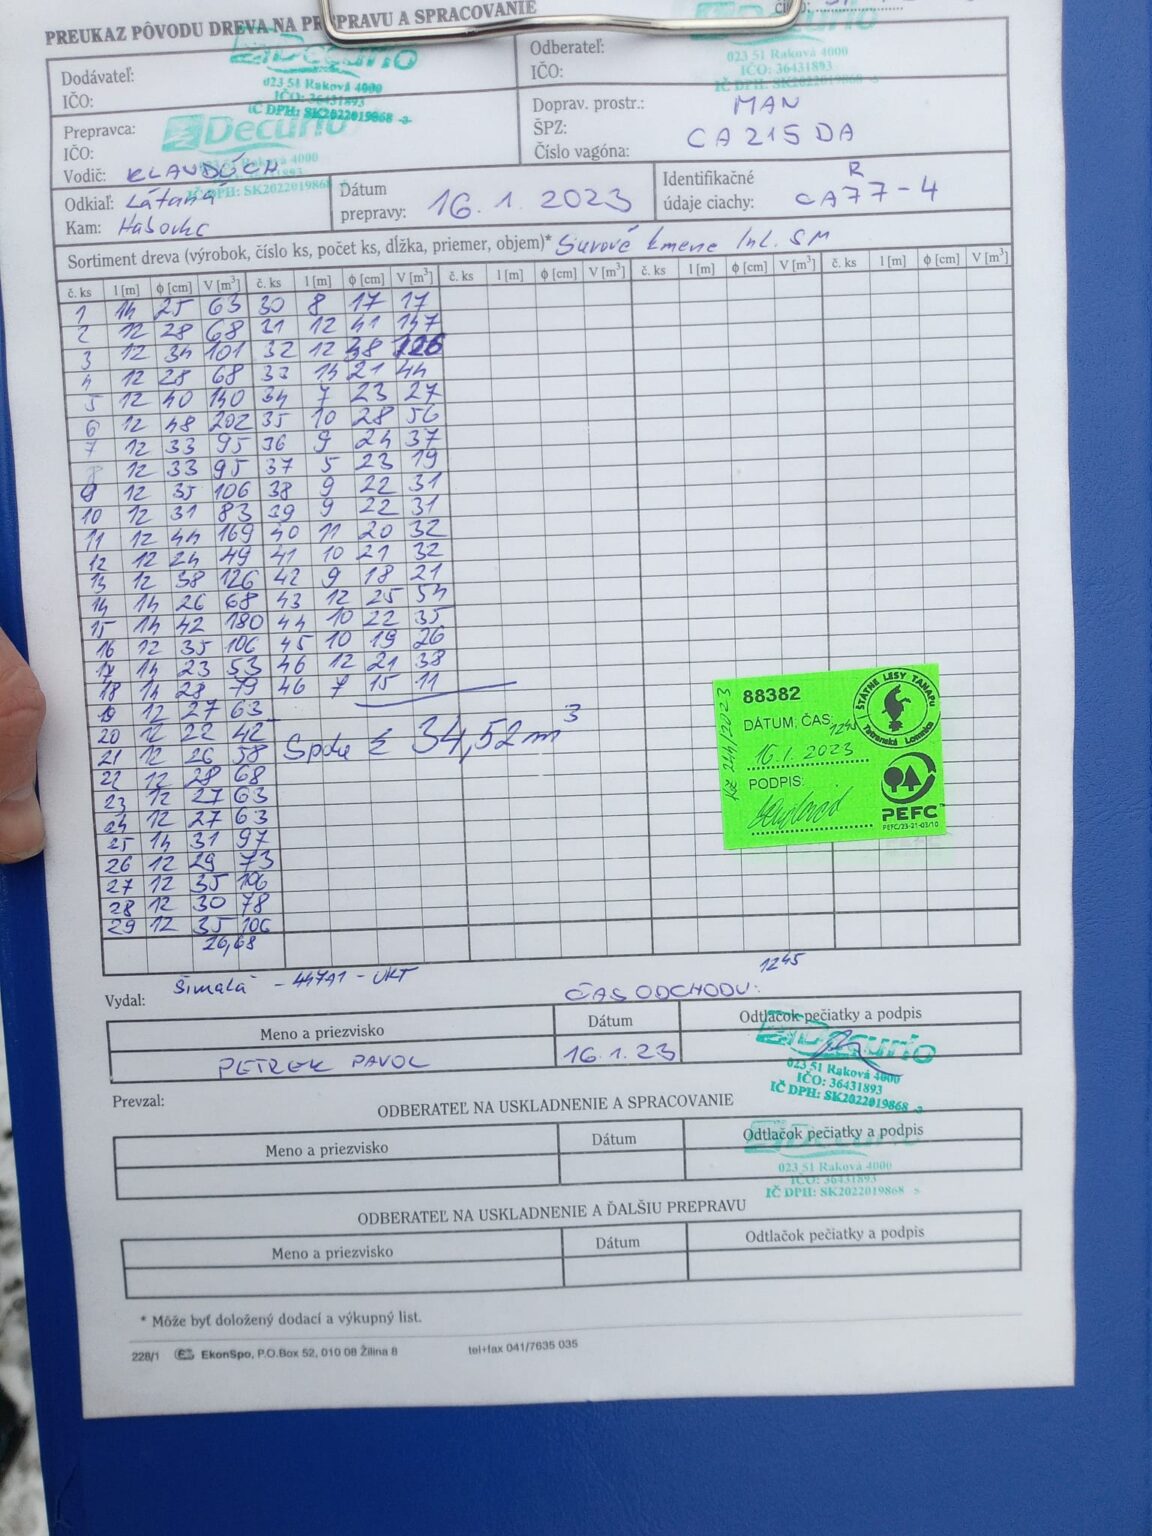 PREUKAZ PÔVODU DREVA NA PREPRAVU A SPRACOVANIE
Decurio
023 51 Raková 4000
IČO: 36431893
IČ DPH: SK2022019868 -3-
Dodávateľ:
IČO:
Odberateľ:
IČO:
023 51 Raková 4000
IČO: 36431893
IČ DPH: SK2022019868 -3
Prepravca:
IČO:
Vodič: KLAUDÚCH
Decurio
023 51 Raková 4000
IČ DPH: SK2022019868
Doprav. prostr.: MAN
ŠPZ: CA 215 DA
Číslo vagóna:
Odkiaľ: Látaná
Kam: Habovka
Dátum prepravy: 16. 1. 2023
Identifikačné údaje ciachy: R CA77-4
Sortiment dreva (výrobok, číslo ks, počet ks, dĺžka, priemer, objem)* Surové kmene Ihl. SM
č. ks l [m] ϕ [cm] V [m³] č. ks l [m] ϕ [cm] V [m³] č. ks l [m] ϕ [cm] V [m³] č. ks l [m] ϕ [cm] V [m³] č. ks l [m] ϕ [cm] V [m³]
1 14 25 63 30 8 17 17
2 12 28 68 31 12 41 147
3 12 34 101 32 12 38 126
4 12 28 68 33 14 21 44
5 12 40 140 34 7 23 27
6 12 48 202 35 10 28 56
7 12 33 95 36 9 24 37
8 12 33 95 37 5 23 19
9 12 35 106 38 9 22 31
10 12 31 83 39 9 22 31
11 12 44 169 40 11 20 32
12 12 24 49 41 10 21 32
13 12 38 126 42 9 18 21
14 14 26 68 43 12 25 54
15 14 42 180 44 10 22 35
16 12 35 106 45 10 19 26
17 14 23 53 46 12 21 38
18 14 28 79 46 7 15 11
19 12 27 63
20 12 22 42
21 12 26 58
Spolu Σ 34,52 m³
22 12 28 68
23 12 27 63
24 12 27 63
25 14 31 97
26 12 29 73
27 12 35 106
28 12 30 78
29 12 35 106
26,68
88382
DÁTUM, ČAS: 1245
16.1.2023
PODPIS:
244/2023
ŠTÁTNE LESY TANAPU
Tatranská Lomnica
PEFC
PEFC/23-21-03/10
Vydal: Šimalá - 447A1 - UKT
ČAS ODCHODU: 1245
Meno a priezvisko Dátum Odtlačok pečiatky a podpis
PETREK PAVOL 16.1.23
Decurio
023 51 Raková 4000
IČO: 36431893
IČ DPH: SK2022019868 -3
Prevzal:
ODBERATEĽ NA USKLADNENIE A SPRACOVANIE
Meno a priezvisko Dátum Odtlačok pečiatky a podpis
023 51 Raková 4000
IČO: 36431893
IČ DPH: SK2022019868
ODBERATEĽ NA USKLADNENIE A ĎALŠIU PREPRAVU
Meno a priezvisko Dátum Odtlačok pečiatky a podpis
* Môže byť doložený dodací a výkupný list.
228/1 EkonSpo, P.O.Box 52, 010 08 Žilina 8 tel+fax 041/7635 035